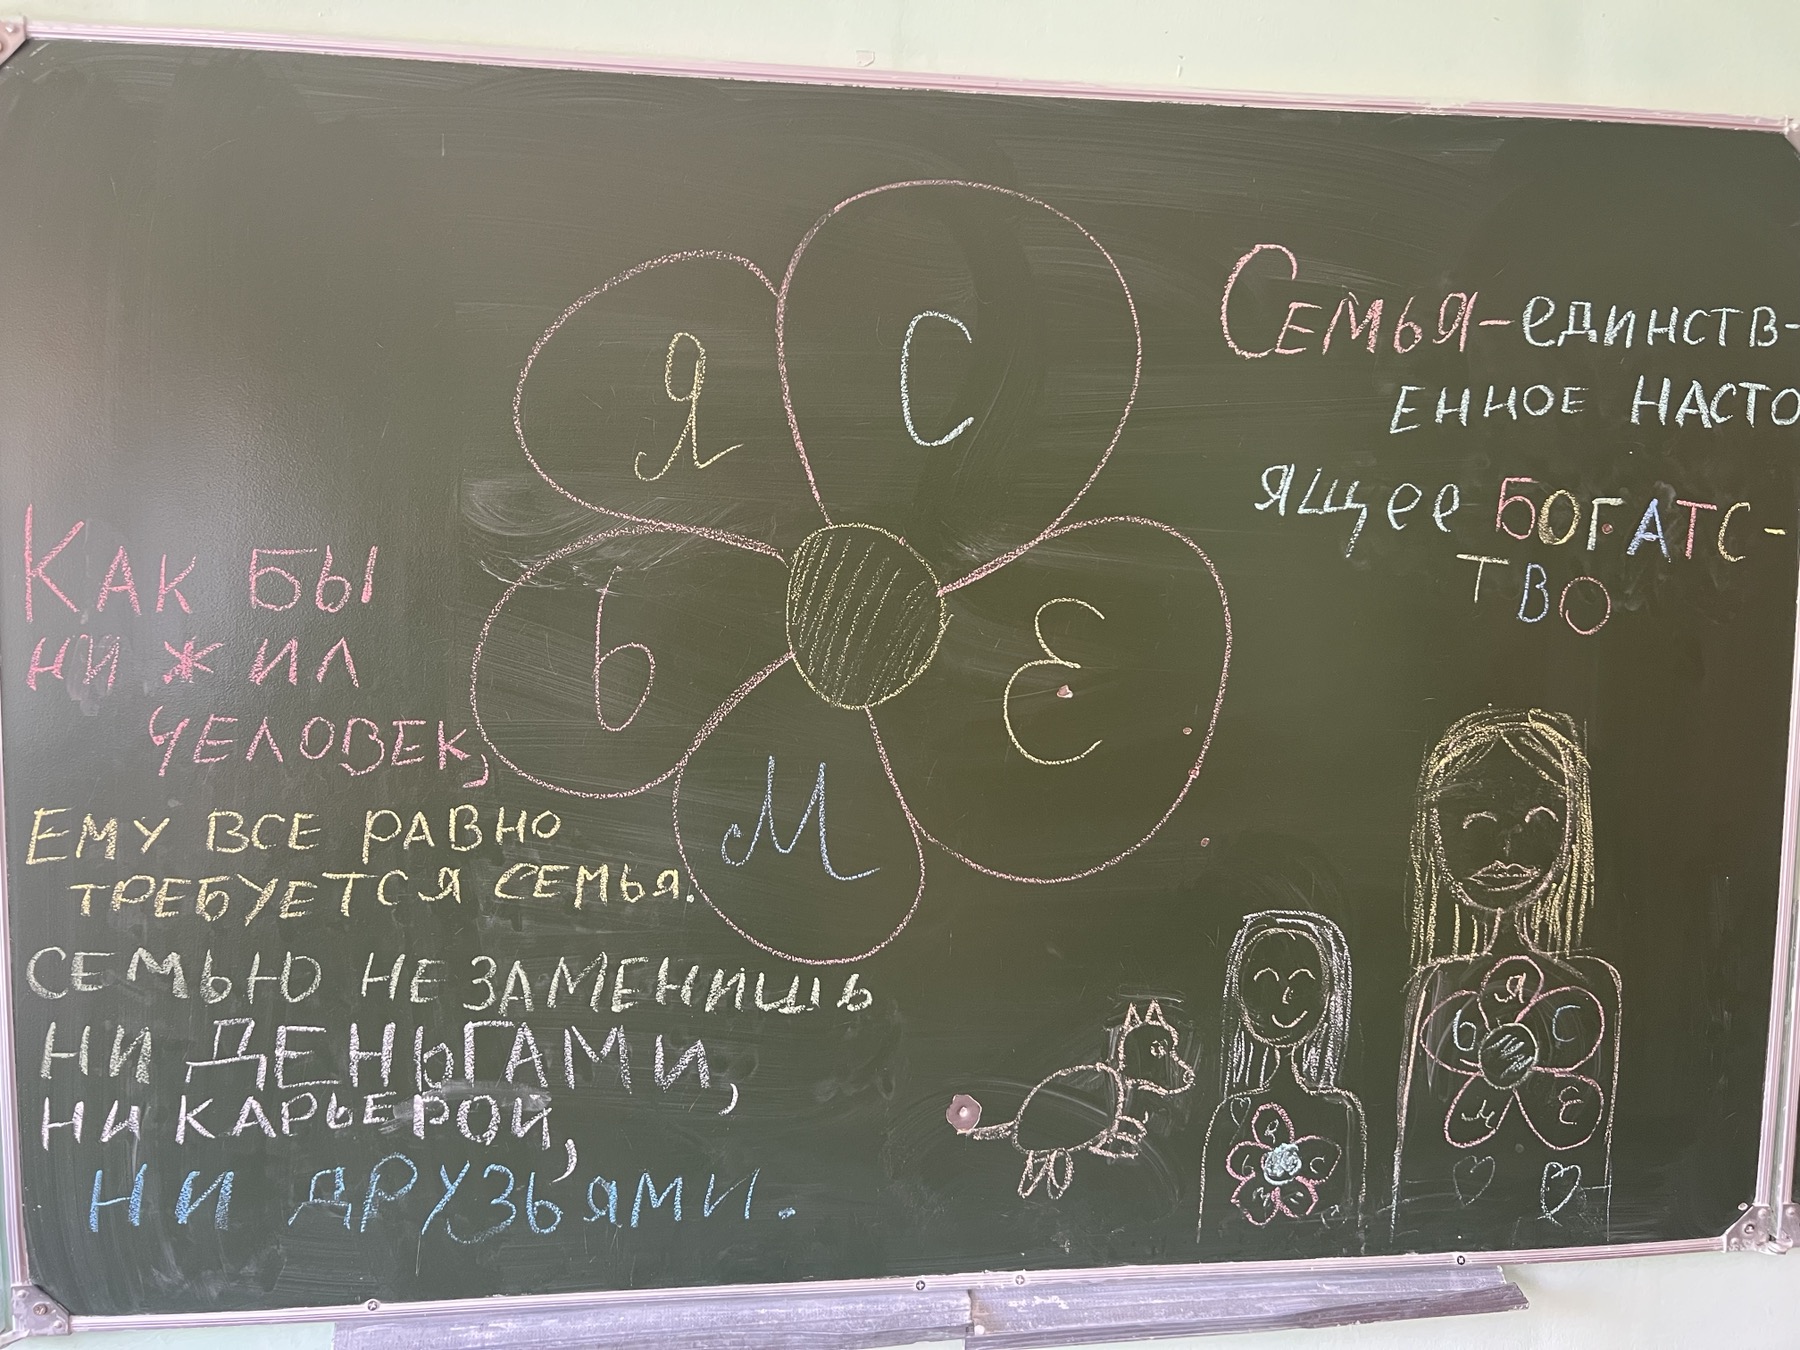 Семья-единств-
енное насто
ящее богатс-
тво
С
Е
М
Ь
Я
Как бы
ни жил
человек,
Ему все равно
требуется семья.
Семью не заменишь
ни деньгами,
ни карьерой,
ни друзьями.
Я
С
Е
М
Ь
Я
С
Е
М
Ь